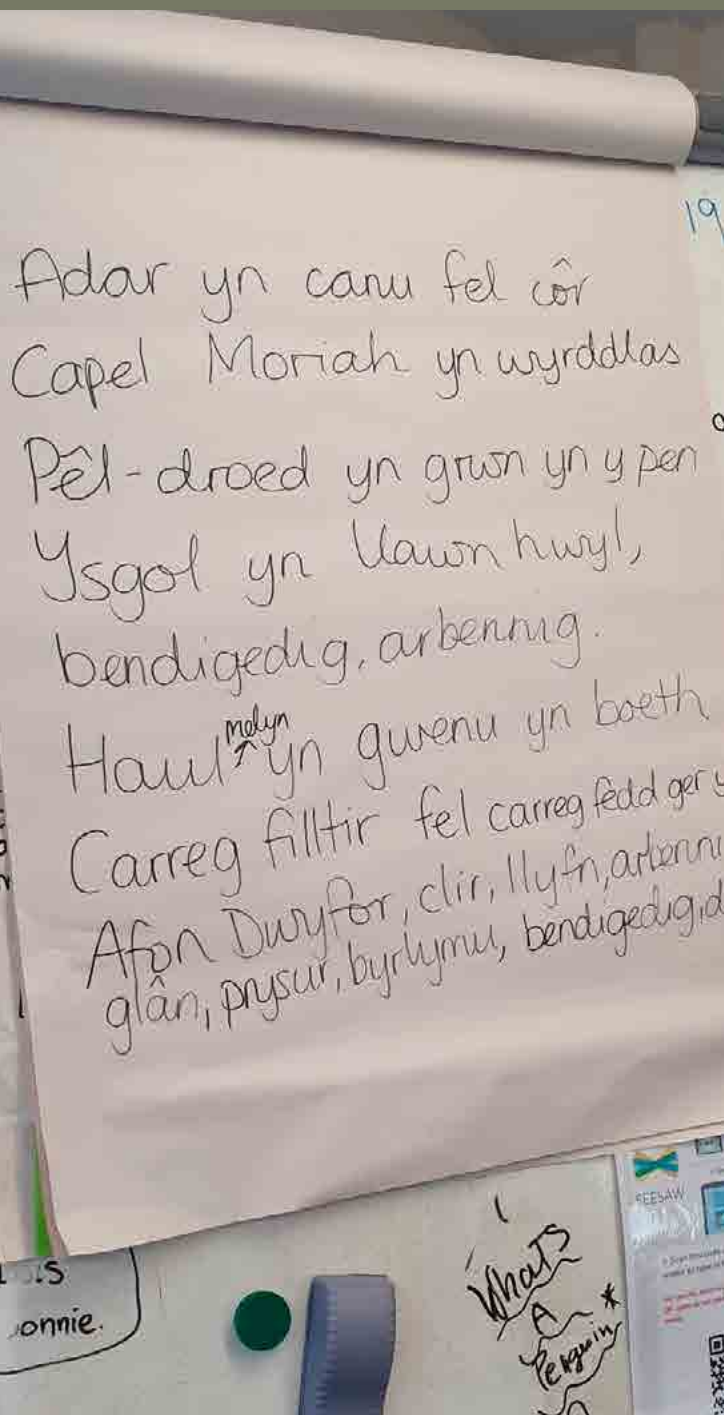 19
Adar yn canu fel côr
Capel Moriah yn wyrddlas
Pêl-droed yn grwn yn y pen
Ysgol yn llawn hwyl,
bendigedig, arbennig.
melyn
Haul ↑ yn gwenu yn boeth
Carreg filltir fel carreg fedd ger y
Afon Dwyfor, clir, llyfn, arbenni
glân, prysur, byrlymu, bendigedig, d
onnie.
Whats
A
Penguin
SEESAW